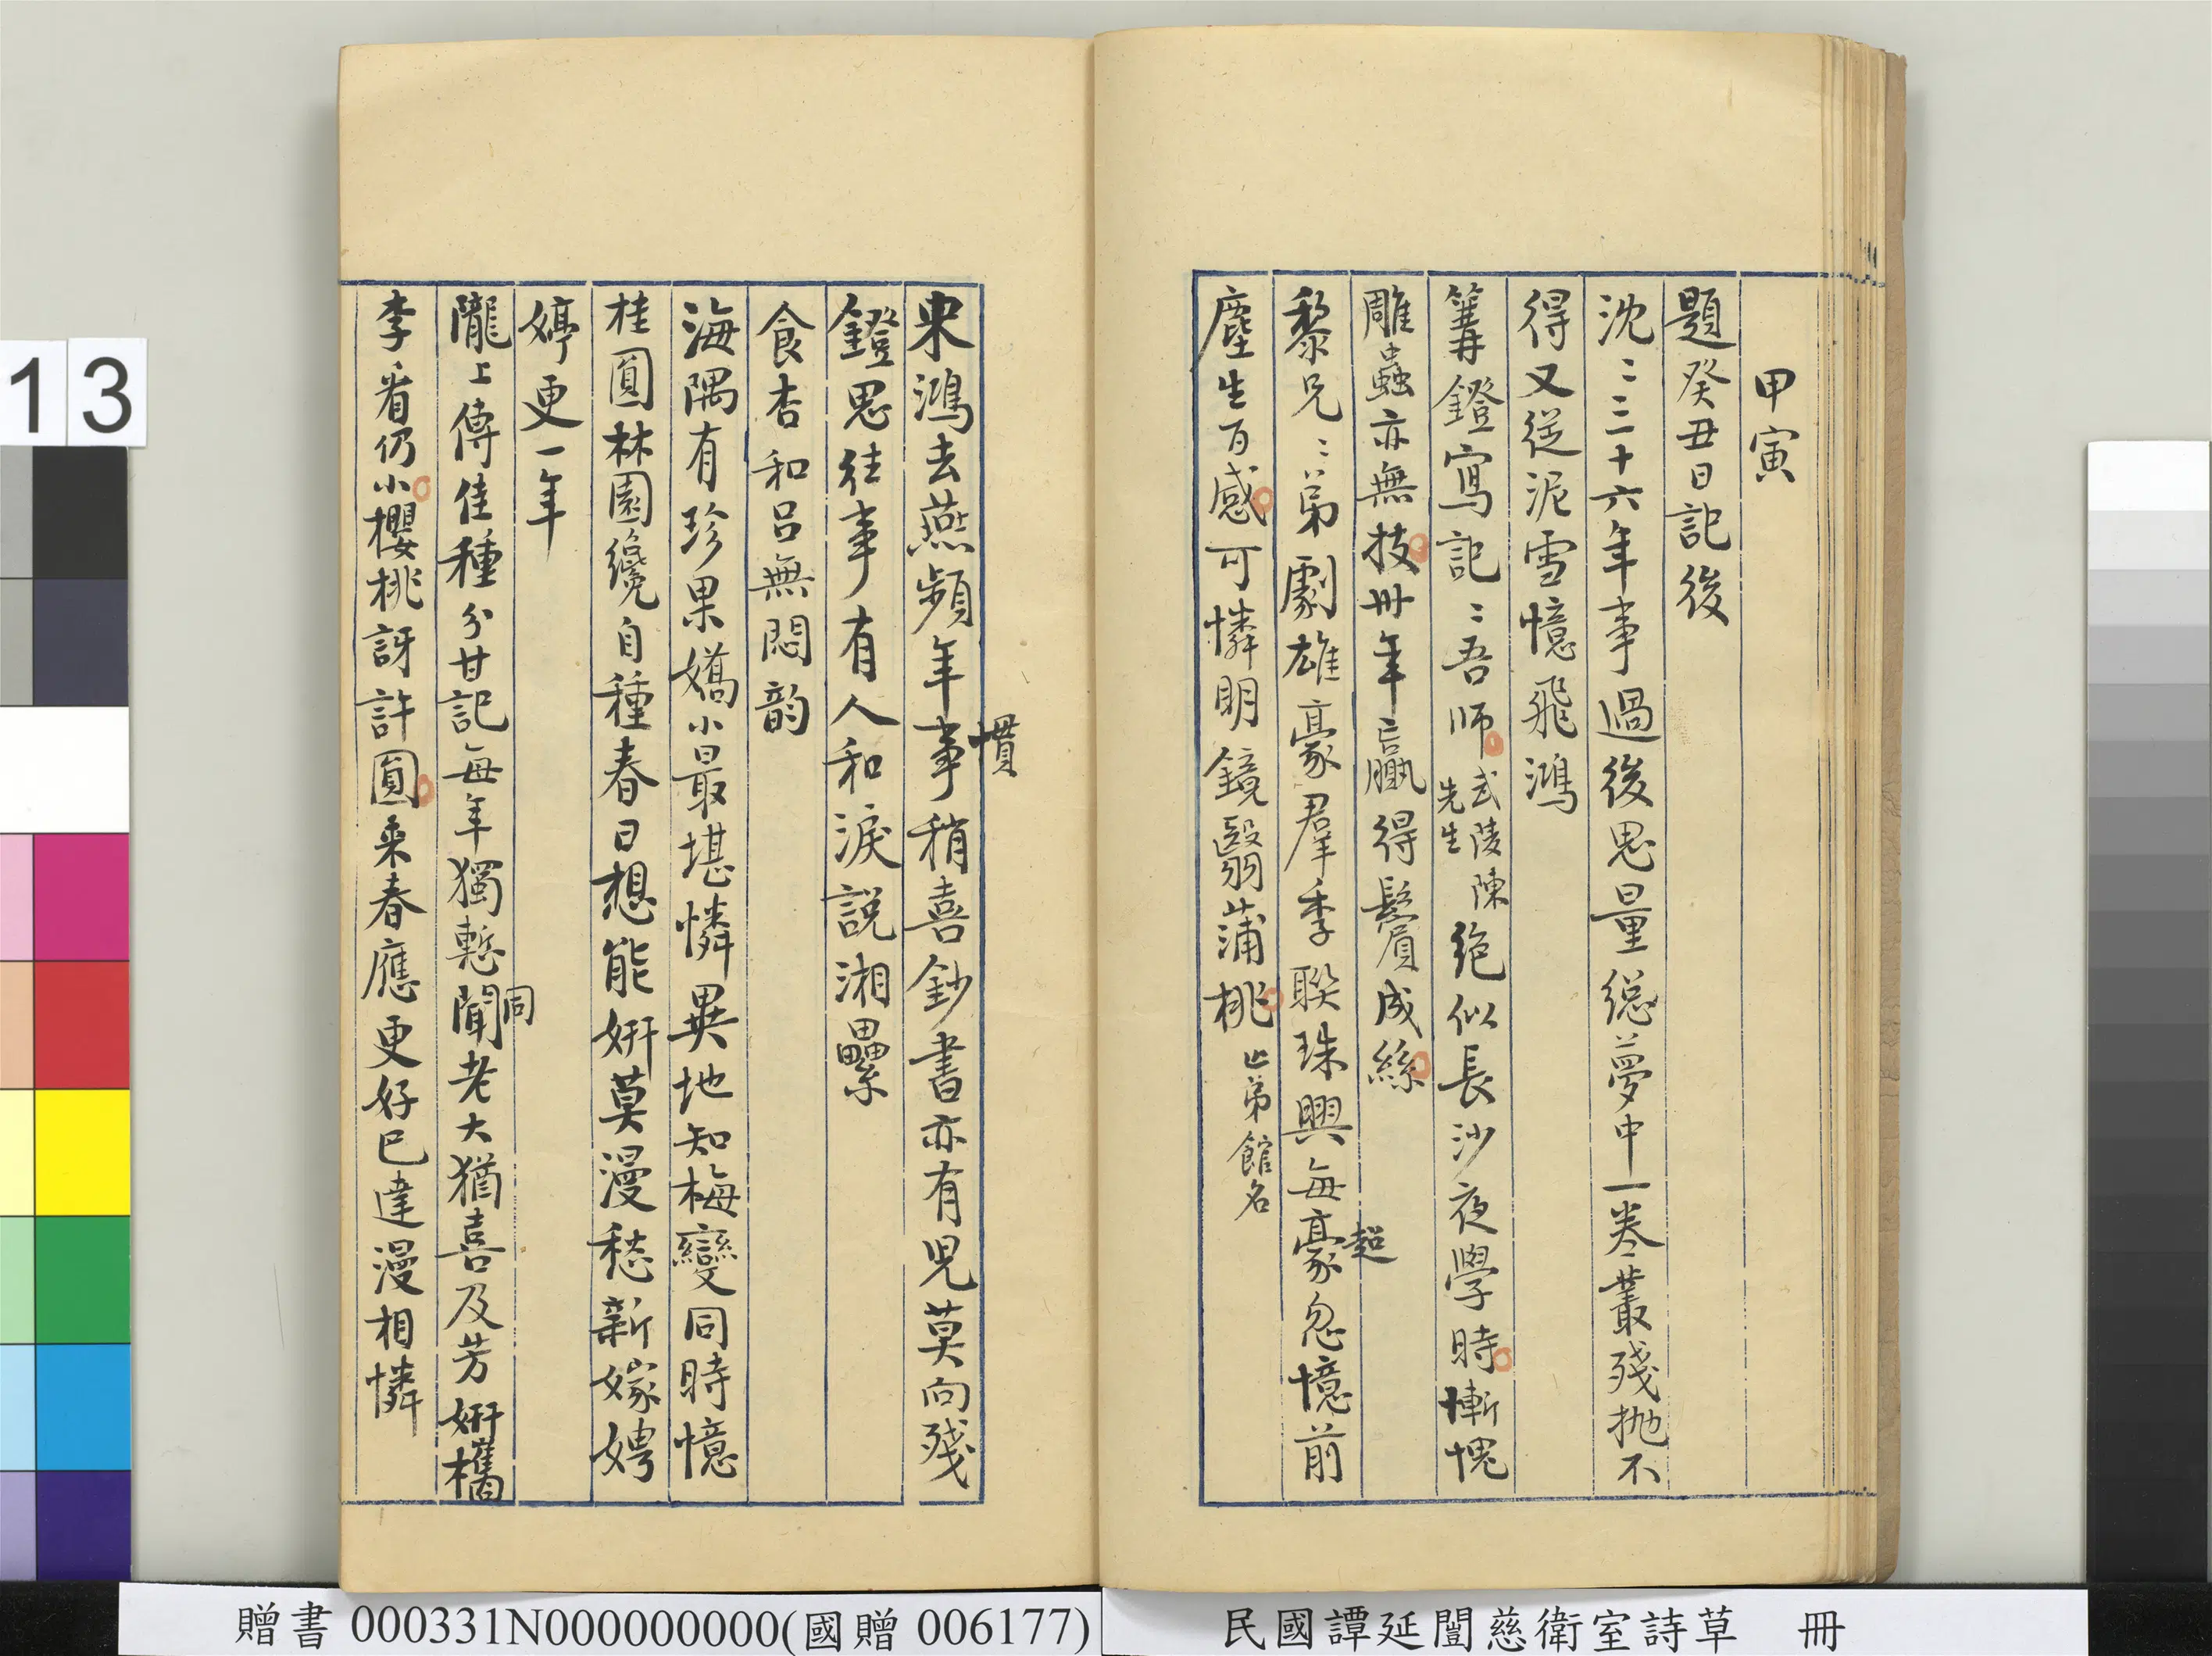 甲寅
題癸丑日記後
沈〻三十六年事過後思量總夢中一卷叢殘拋不
得又從泥雪憶飛鴻
篝鐙寫記〻吾師武陵陳先生絶似長沙夜學時慚愧
雕蟲亦無技卅年贏得鬢成絲
黎兄〻弟劇雄豪羣季聯珠興每豪忽憶前
超
塵生百感可憐明鏡翳蒲桃亡弟館名
來鴻去燕頻年事稍喜鈔書亦有兒莫向殘
慣
鐙思往事有人和淚說湘纍
食杏和呂無悶韵
海隅有珍果嬌小最堪憐異地知梅變同時憶
桂圓林園纔自種春日想能妍莫漫愁新嫁娉
婷更一年
隴上傳佳種分甘記每年獨慙聞老大猶喜及芳妍檇
同
李看仍小櫻桃訝許圓來春應更好已達漫相憐
13
贈書 000331N000000000(國贈 006177)
民國譚延闓慈衛室詩草 冊